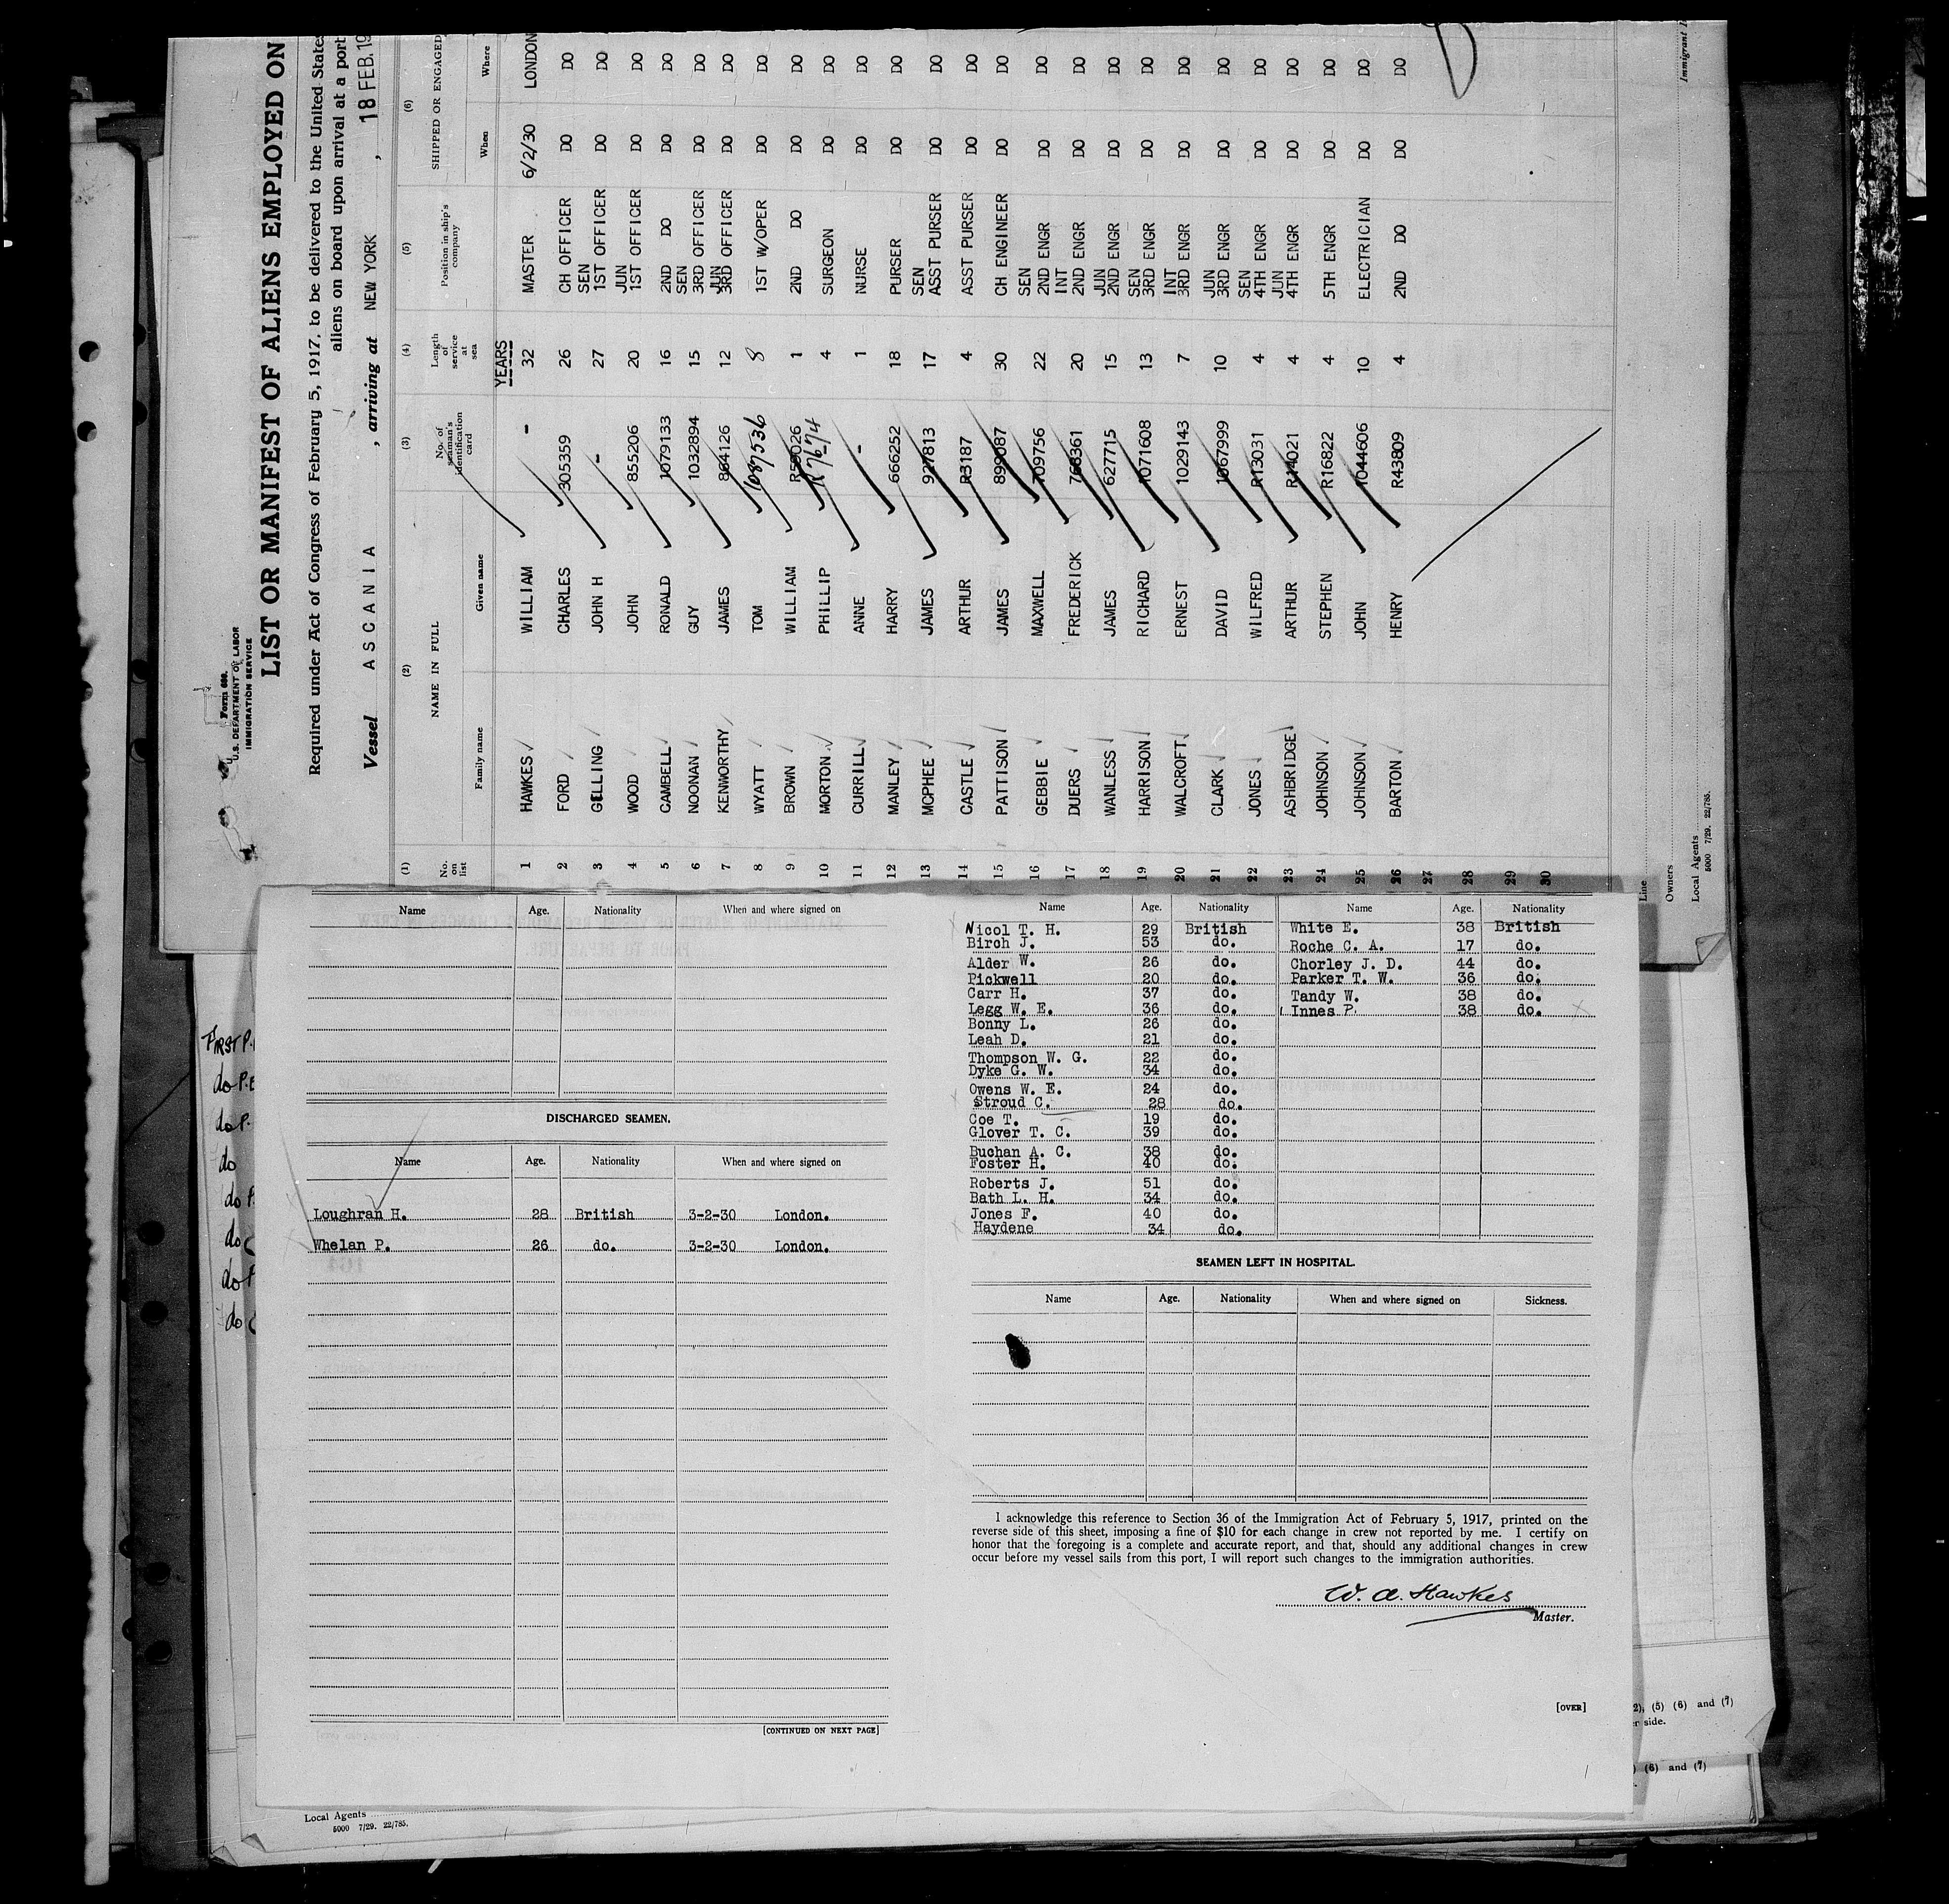 Form 680.
U.S. DEPARTMENT OF LABOR
IMMIGRATION SERVICE
LIST OR MANIFEST OF ALIENS EMPLOYED ON
Required under Act of Congress of February 5, 1917, to be delivered to the United States
aliens on board upon arrival at a port
Vessel ASCANIA , arriving at NEW YORK , 18 FEB.19
(1) (2) (3) (4) (5) (6)
No. on list NAME IN FULL No. of seaman's identification card Length of service at sea Position in ship's company SHIPPED OR ENGAGED
Family name Given name When Where
YEARS
1 HAWKES WILLIAM - 32 MASTER 6/2/30 LONDON
2 FORD CHARLES 305359 26 CH OFFICER DO DO
3 GILLING JOHN H - 27 SEN 1ST OFFICER DO DO
4 WOOD JOHN 855206 20 JUN 1ST OFFICER DO DO
5 CAMBELL RONALD 1079133 16 2ND DO DO DO
6 NOONAN GUY 1032894 15 SEN 3RD OFFICER DO DO
7 KENWORTHY JAMES 864126 12 JUN 3RD OFFICER DO DO
8 WYATT TOM 1087536 8 1ST W/OPER DO DO
9 BROWN WILLIAM R59026 1 2ND DO DO DO
10 MORTON PHILLIP R76274 4 SURGEON DO DO
11 CURRILL ANNE - 1 NURSE DO DO
12 MANLEY HARRY 666252 18 PURSER DO DO
13 MCPHEE JAMES 927813 17 SEN ASST PURSER DO DO
14 CASTLE ARTHUR R3187 4 ASST PURSER DO DO
15 PATTISON JAMES 899087 30 CH ENGINEER DO DO
16 GEBBIE MAXWELL 709756 22 SEN 2ND ENGR DO DO
17 DUERS FREDERICK 768361 20 INT 2ND ENGR DO DO
18 WANLESS JAMES 627715 15 JUN 2ND ENGR DO DO
19 HARRISON RICHARD 1071608 13 SEN 3RD ENGR DO DO
20 WALCROFT ERNEST 1029143 7 INT 3RD ENGR DO DO
21 CLARK DAVID 1067999 10 JUN 3RD ENGR DO DO
22 JONES WILFRED R13031 4 SEN 4TH ENGR DO DO
23 ASHBRIDGE ARTHUR R14021 4 JUN 4TH ENGR DO DO
24 JOHNSON STEPHEN R16822 4 5TH ENGR DO DO
25 JOHNSON JOHN 1044606 10 ELECTRICIAN DO DO
26 BARTON HENRY R43809 4 2ND DO DO DO
27
28
29
30
Line
Owners
Local Agents
5000 7/29. 22/785.
Immigrant
FIRST P.
do P.E
do P.
do
do P
do
do P
do
Name Age. Nationality When and where signed on
DISCHARGED SEAMEN.
Name Age. Nationality When and where signed on
Loughran H. 28 British 3-2-30 London.
Whelan P. 26 do. 3-2-30 London.
[CONTINUED ON NEXT PAGE]
Name Age. Nationality Name Age. Nationality
Nicol T. H. 29 British White E. 38 British
Birch J. 53 do. Roche C. A. 17 do.
Alder W. 26 do. Chorley J. D. 44 do.
Pickwell 20 do. Parker T. W. 36 do.
Carr H. 37 do. Tandy W. 38 do.
Legg W. E. 36 do. Innes P. 38 do.
Bonny L. 26 do.
Leah D. 21 do.
Thompson W. G. 22 do.
Dyke G. W. 34 do.
Owens W. E. 24 do.
Stroud C. 28 do.
Coe T. 19 do.
Glover T. C. 39 do.
Buchan A. C. 38 do.
Foster H. 40 do.
Roberts J. 51 do.
Bath L. H. 34 do.
Jones F. 40 do.
Haydene 34 do.
SEAMEN LEFT IN HOSPITAL.
Name Age. Nationality When and where signed on Sickness.
I acknowledge this reference to Section 36 of the Immigration Act of February 5, 1917, printed on the
reverse side of this sheet, imposing a fine of $10 for each change in crew not reported by me. I certify on
honor that the foregoing is a complete and accurate report, and that, should any additional changes in crew
occur before my vessel sails from this port, I will report such changes to the immigration authorities.
W. A. Hawkes
Master.
[OVER]
2), (5) (6) and (7)
r side.
) (6) and (7)
Local Agents
5000 7/29. 22/785.